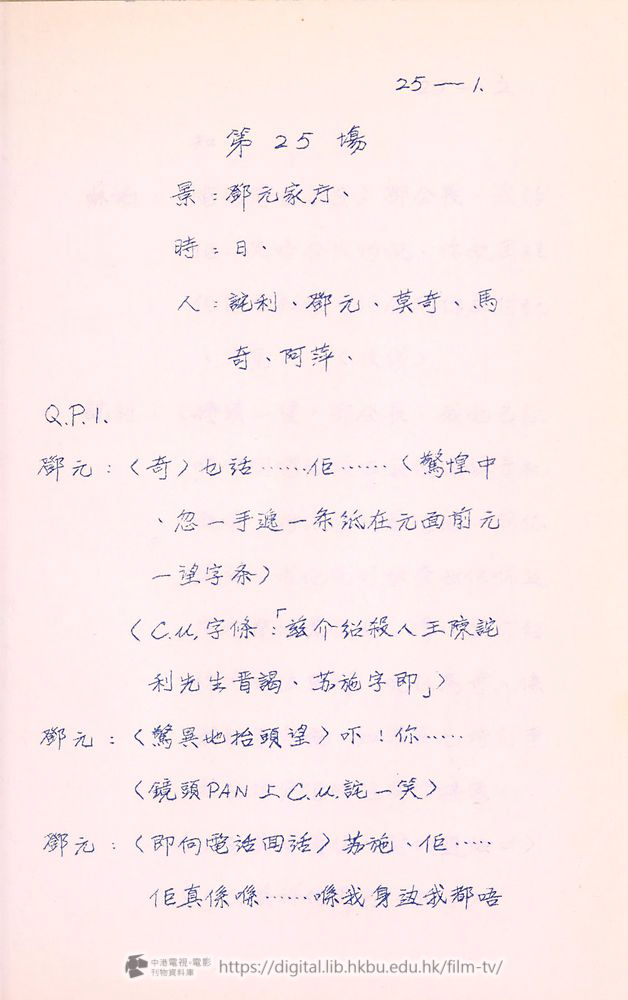 25 — 1.
第 25 場
景：鄧元家厅、
時：日、
人：詫利、鄧元、莫奇、馬
奇、阿萍、
Q.P.1.
鄧元：〈奇〉乜話……佢……〈驚惶中
、忽一手遞一条紙在元面前元
一望字条〉
〈C.U.字條：「兹介紹殺人王陳詫
利先生晋謁、苏施字即」〉
鄧元：〈驚異地抬頭望〉吓！你……
〈鏡頭PAN上C.U.詫一笑〉
鄧元：〈即向電話回話〉苏施、佢……
佢真係喺……喺我身边我都唔
中港電視·電影
刊物資料庫
https://digital.lib.hkbu.edu.hk/film-tv/